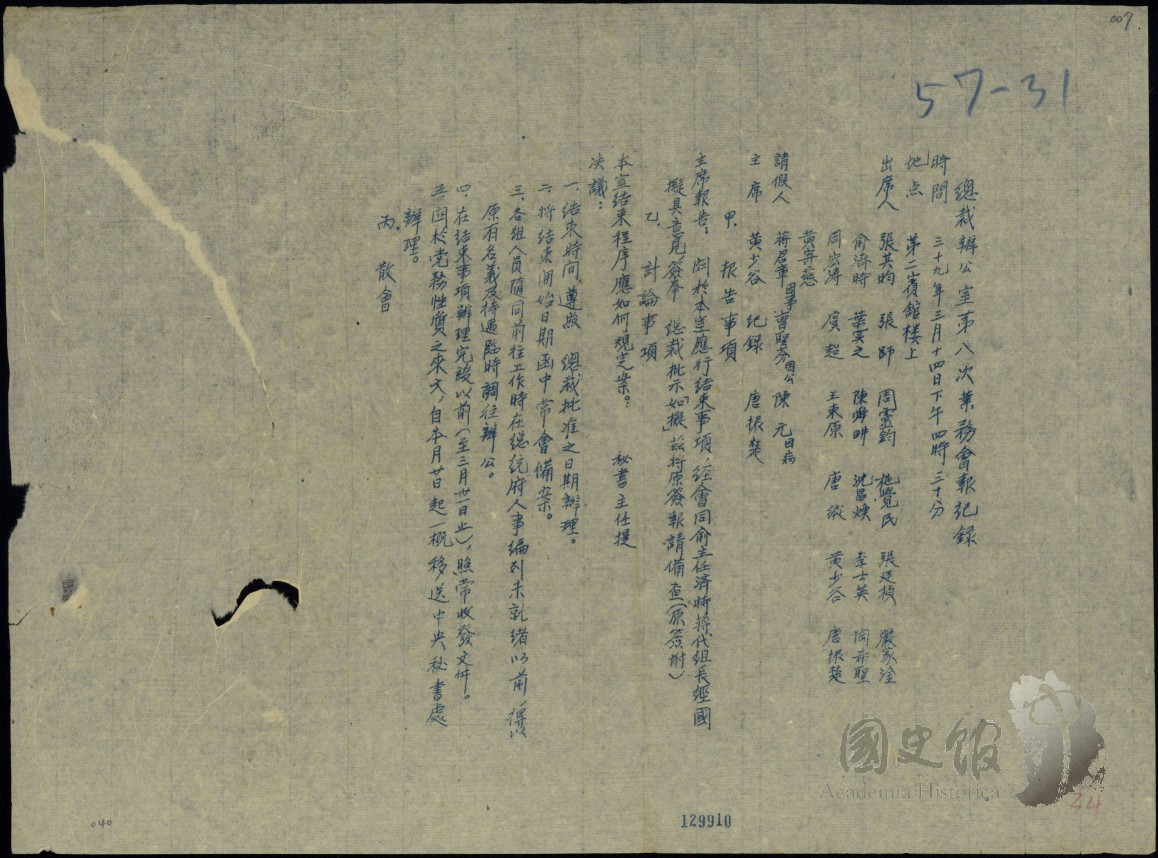 007
57-31
總裁辦公室第八次業務會報紀錄
時間 三十九年三月十四日下午四時三十分
地点 第二賓館楼上
出席人 張其昀 張師 周靈鈞 施覺民 張廷楨 嚴家淦
俞濟時 葉实之 陳舜畊 沈昌煥 李士英 陶希聖
周宏濤 虞超 王東原 唐縱 黃少谷 唐振楚
黃寄慈
請假人 蔣君章因事 曹聖芬因公 陳元因病
主席 黃少谷 紀錄 唐振楚
甲、報告事項
主席報告：関於本室應行結束事項，经會同俞主任濟時蔣代組長經國
擬具意見，簽奉 總裁批示「如擬」茲將原簽報請備查（原簽附）
乙、討論事項
本室结束程序應如何規定案。 秘書主任提
决議：
一、结束時间，遵照 總裁批准之日期辦理。
二、将结束開始日期函中常會備案。
三、各組人員随同前往工作時在總統府人事編列未就緒以前，得以
原有名義及待遇臨時調往辦公。
四、在结束事項辦理完竣以前（至三月卅一日止），照常收發文件。
五、関於党務性質之來文，自本月廿日起一概移送中央秘書處
辦理。
丙、散會
國史館
Academia Historica
34
129910
040